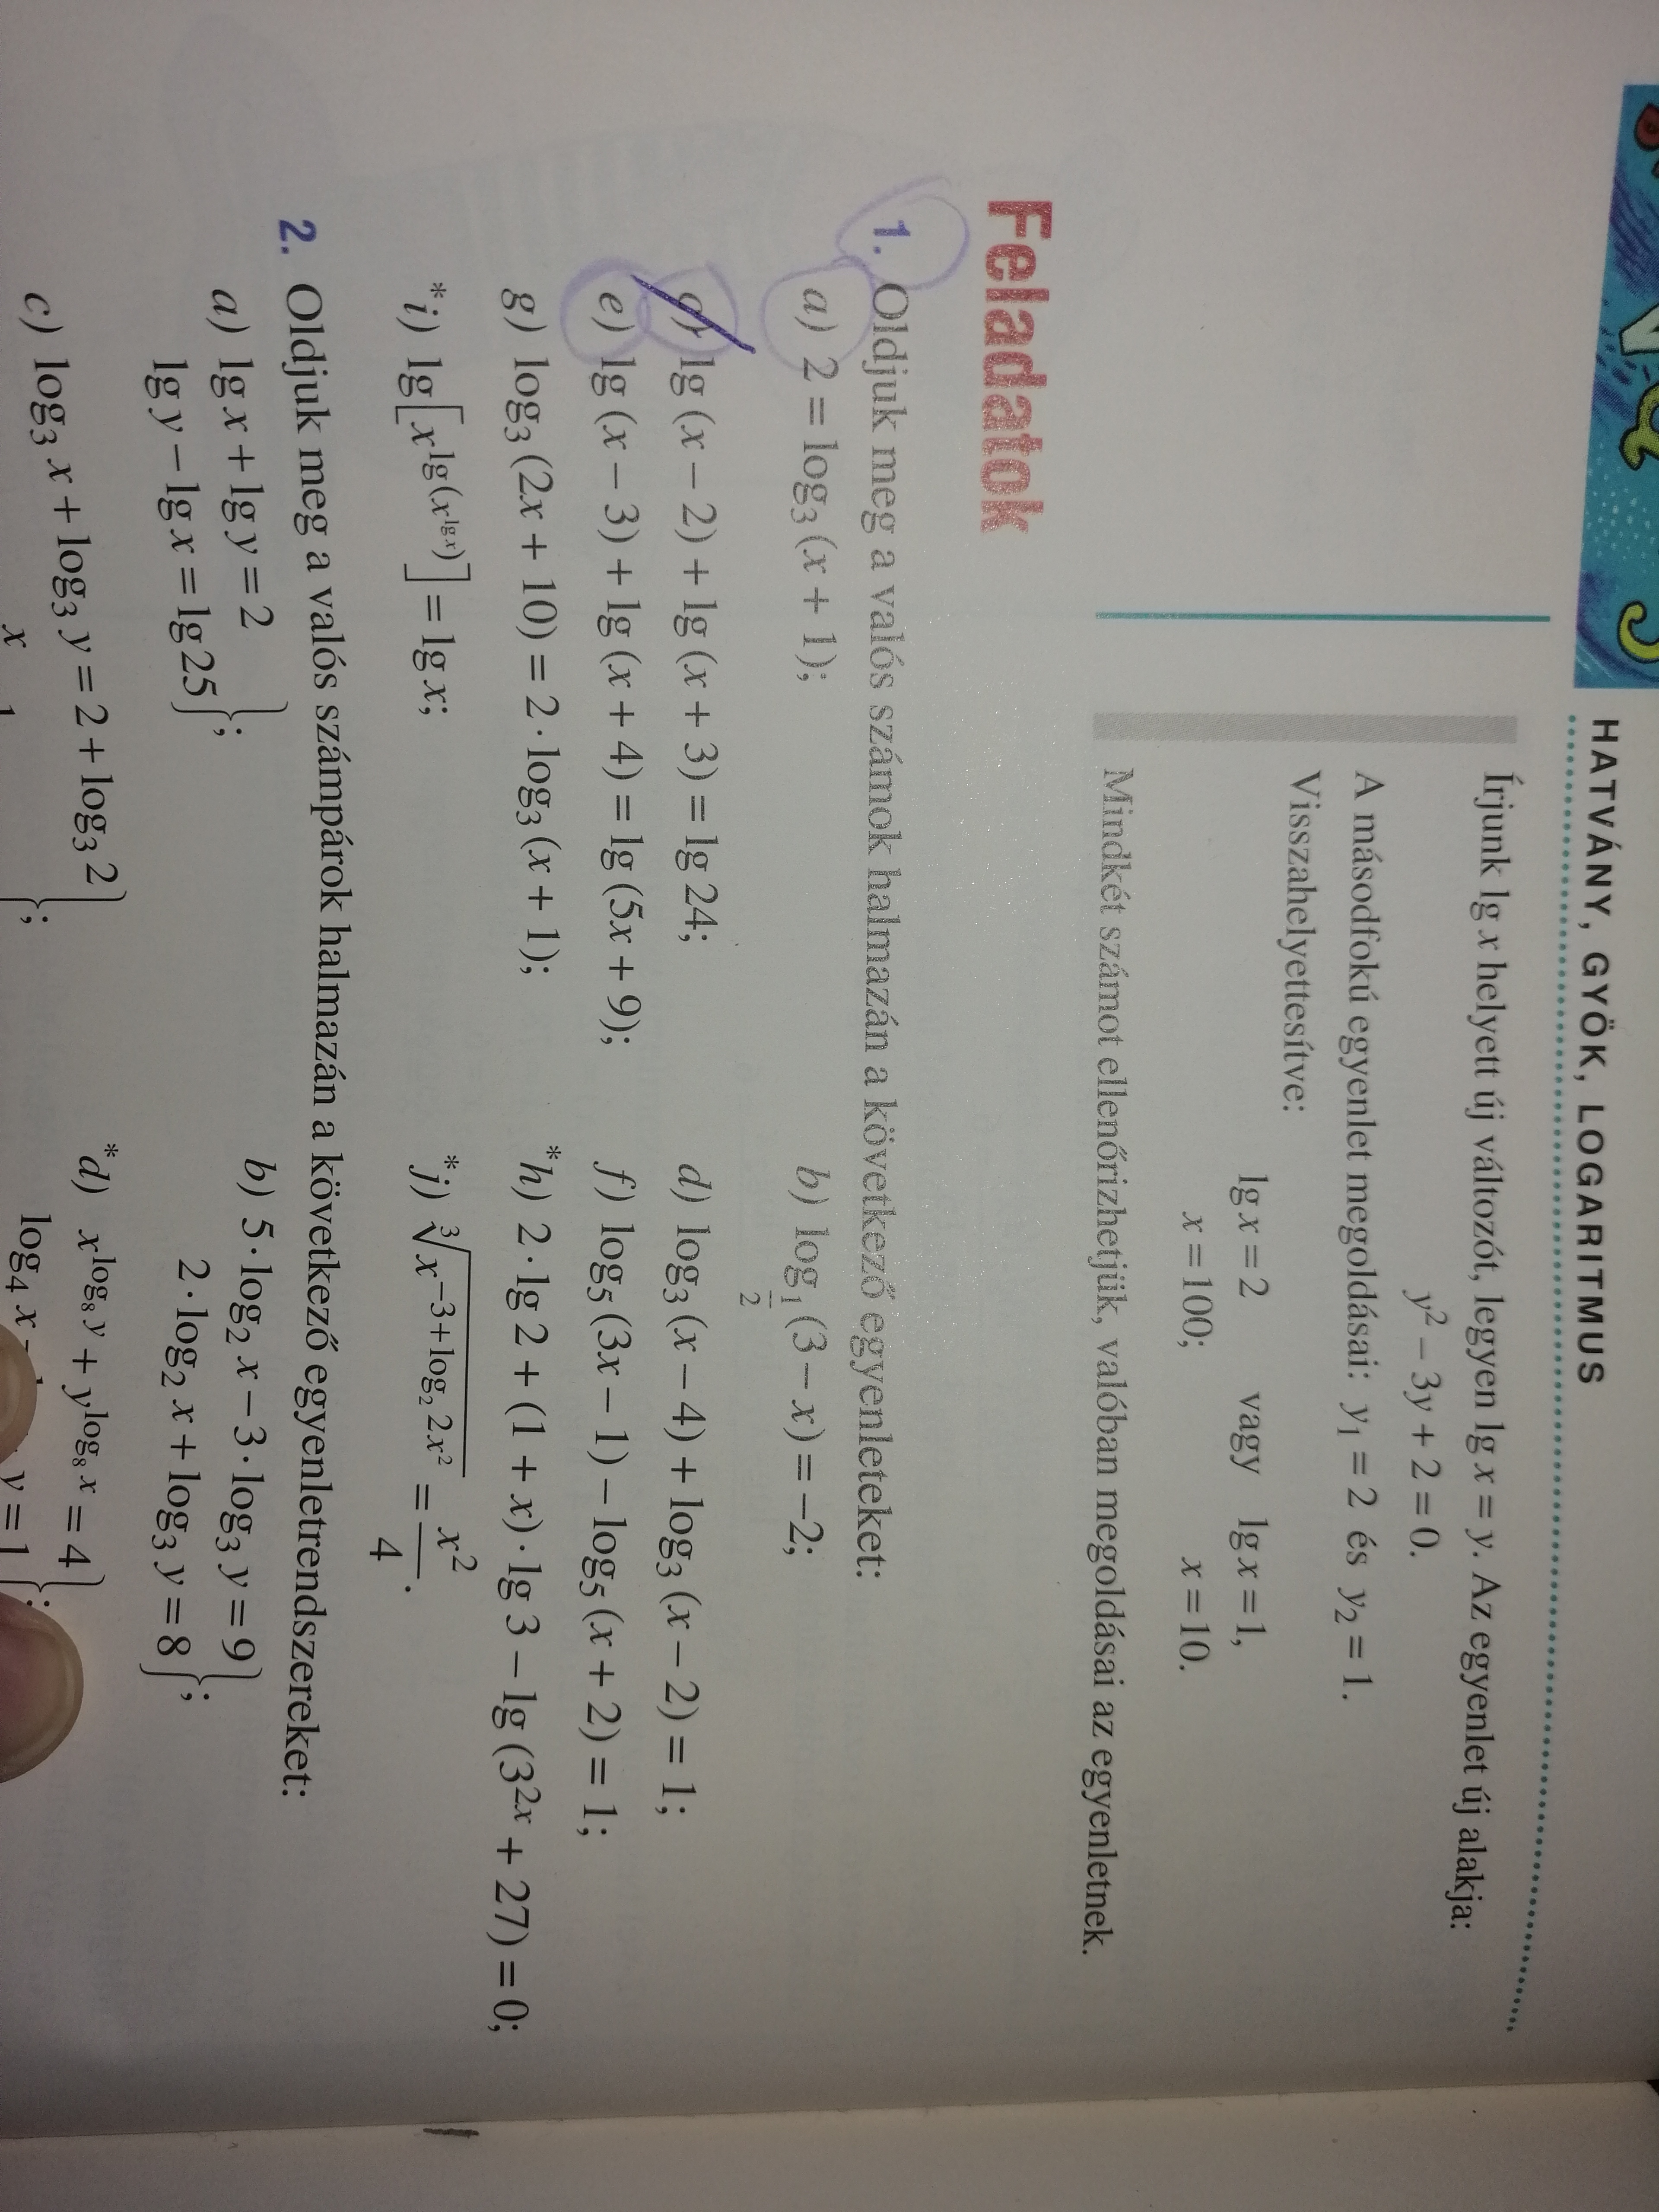 HATVÁNY, GYÖK, LOGARITMUS
Írjunk lg x helyett új változót, legyen lg x = y. Az egyenlet új alakja:
y² − 3y + 2 = 0.
A másodfokú egyenlet megoldásai: y₁ = 2 és y₂ = 1.
Visszahelyettesítve:
lg x = 2 vagy lg x = 1,
x = 100; x = 10.
Mindkét számot ellenőrizhetjük, valóban megoldásai az egyenletnek.
Feladatok
1. Oldjuk meg a valós számok halmazán a következő egyenleteket:
a) 2 = log₃ (x + 1); b) log_{1/2} (3 − x) = −2;
c) lg (x − 2) + lg (x + 3) = lg 24; d) log₃ (x − 4) + log₃ (x − 2) = 1;
e) lg (x − 3) + lg (x + 4) = lg (5x + 9); f) log₅ (3x − 1) − log₅ (x + 2) = 1;
g) log₃ (2x + 10) = 2 · log₃ (x + 1); *h) 2 · lg 2 + (1 + x) · lg 3 − lg (3^{2x} + 27) = 0;
*i) lg[x^{lg(x^{lg x})}] = lg x; *j) ∛(x^{−3 + log₂ 2x²}) = x²/4.
2. Oldjuk meg a valós számpárok halmazán a következő egyenletrendszereket:
a) lg x + lg y = 2 b) 5 · log₂ x − 3 · log₃ y = 9
lg y − lg x = lg 25 }; 2 · log₂ x + log₃ y = 8 };
c) log₃ x + log₃ y = 2 + log₃ 2 *d) x^{log₈ y} + y^{log₈ x} = 4
log₄ x − y = 1